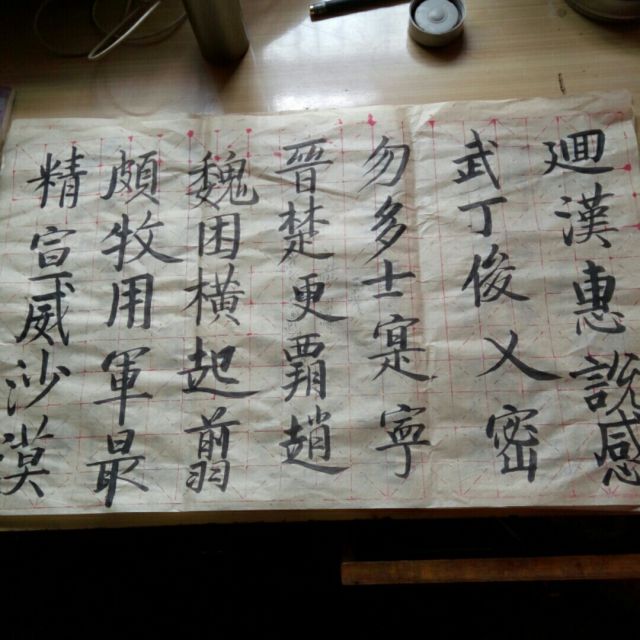 迴漢惠說感
武丁俊乂密
勿多士寔寧
晉楚更覇趙
魏困橫起翦
頗牧用軍最
精宣威沙漠